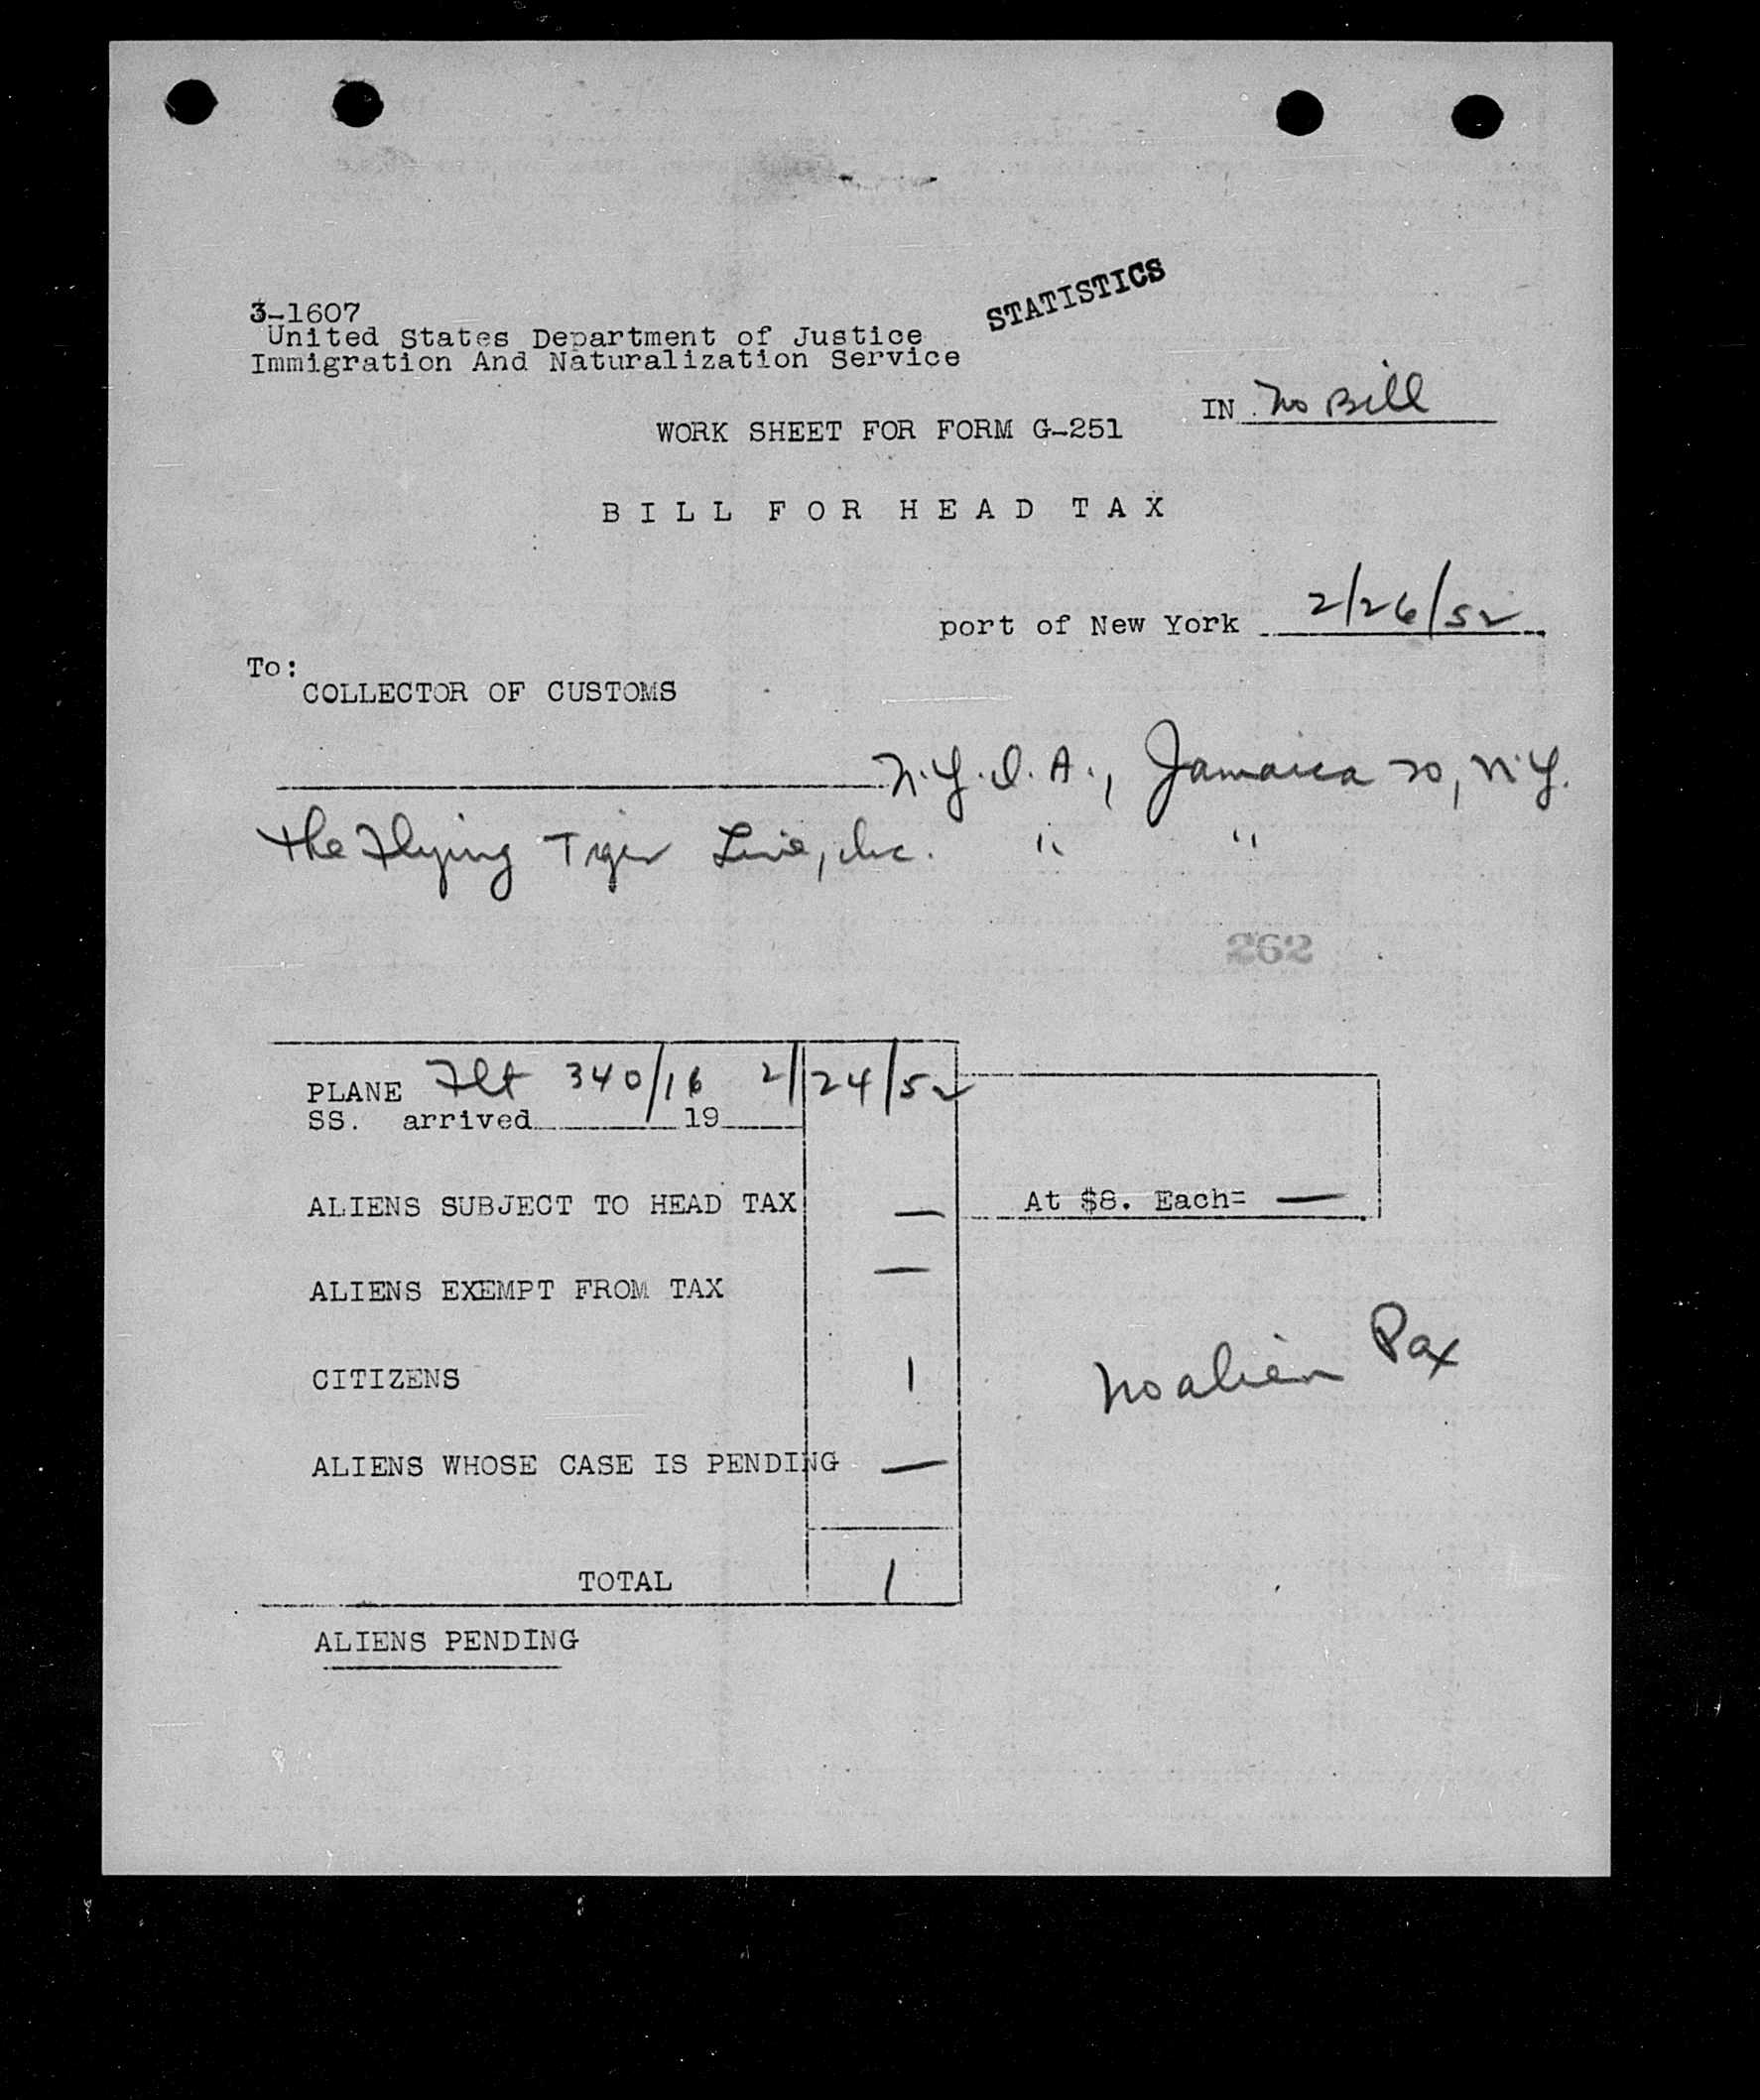 STATISTICS
3-1607
United States Department of Justice
Immigration And Naturalization Service
IN No Bill
WORK SHEET FOR FORM G-251
BILL FOR HEAD TAX
port of New York 2/26/52
To:
COLLECTOR OF CUSTOMS
N.Y.I.A., Jamaica 20, N.Y.
The Flying Tiger Line, Inc. " "
262
PLANE Flt 340/16 2/24/52
SS. arrived 19
ALIENS SUBJECT TO HEAD TAX — At $8. Each= —
ALIENS EXEMPT FROM TAX —
CITIZENS 1
No alien Pax
ALIENS WHOSE CASE IS PENDING —
TOTAL 1
ALIENS PENDING